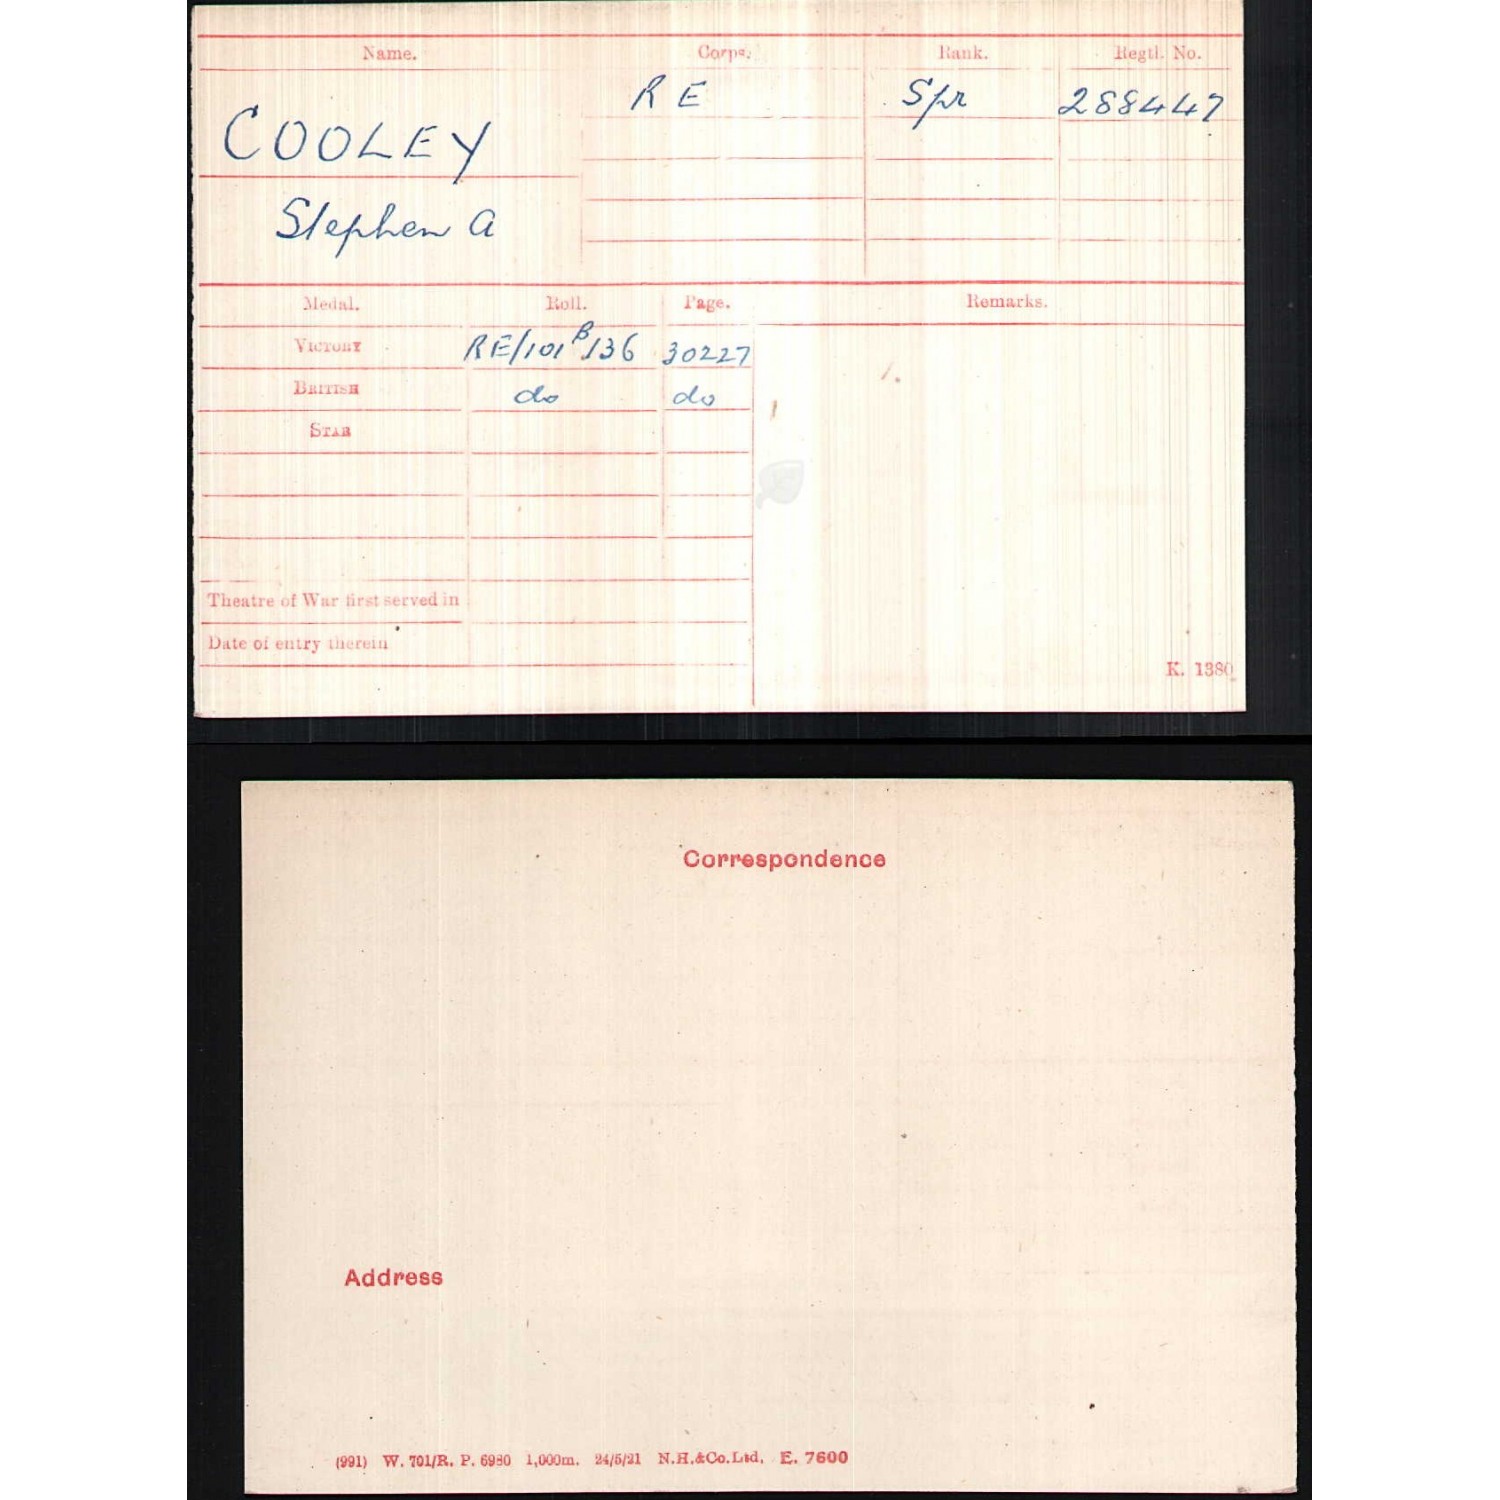 Name. Corps. Rank. Regtl. No.
COOLEY R E Spr 288447
Stephen A
Medal. Roll. Page. Remarks.
VICTORY RE/101 B/136 30227
BRITISH do do
STAR
Theatre of War first served in
Date of entry therein
K. 1380
Correspondence
Address
(991) W. 701/R. P. 6980 1,000m. 24/5/21 N.H.&Co.Ltd. E. 7600